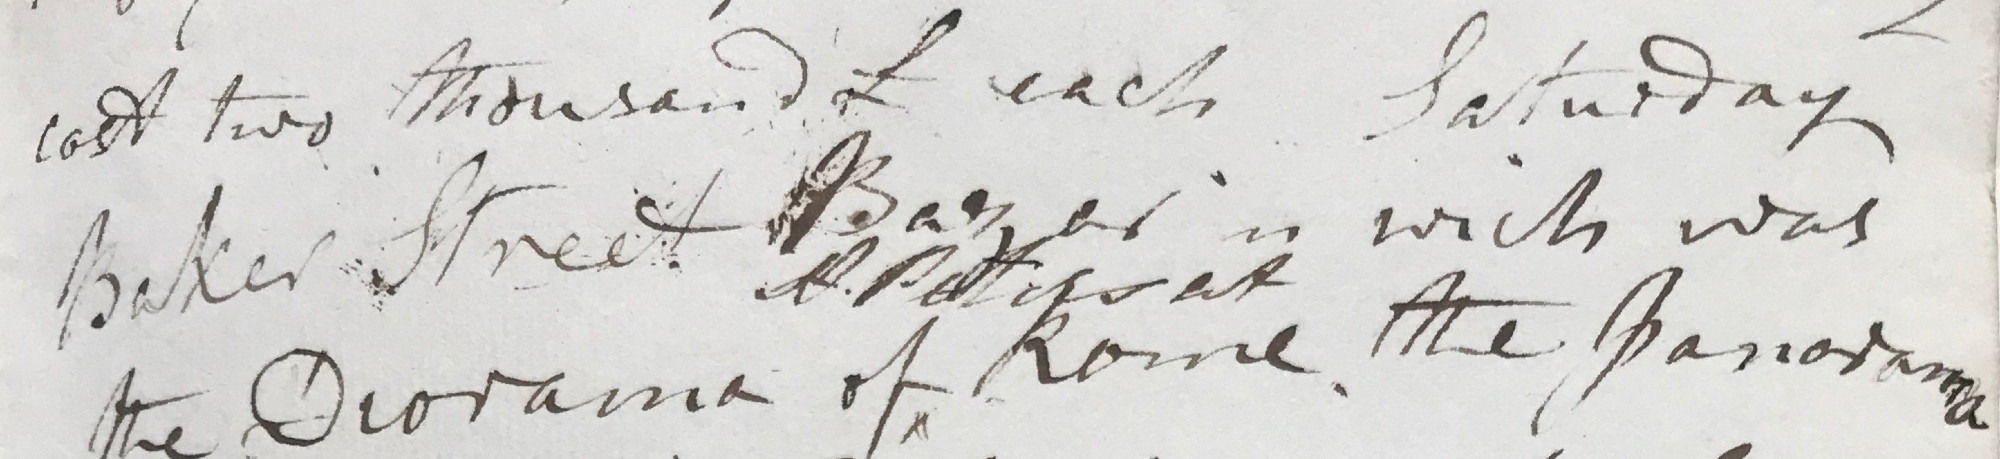 cost two thousand £ each Saturday
Baker Street Bazar in wich was
St. Peters at
the Diorama of Rome. the Panorama